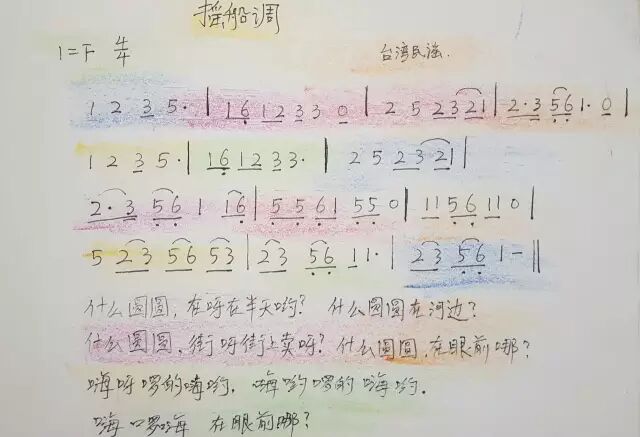 摇船调
1=F 4/4 台湾民谣.
1 2 3 5· | 1 6 1 2 3 3 0 | 2 5 2 3 2 1 | 2· 3 5 6 1· 0 |
1 2 3 5· | 1 6 1 2 3 3· | 2 5 2 3 2 1 |
2· 3 5 6 1 1 6 | 5 5 6 1 5 5 0 | 1 1 5 6 1 1 0 |
5 2 3 5 6 5 3 | 2 3 5 6 1 1· | 2 3 5 6 1 - ||
什么圆圆,在呀在半天哟? 什么圆圆在河边?
什么圆圆,街呀街上卖呀? 什么圆圆,在眼前哪?
嗨呀啰的嗨哟, 嗨哟啰的嗨哟.
嗨啰嗨 在眼前哪?